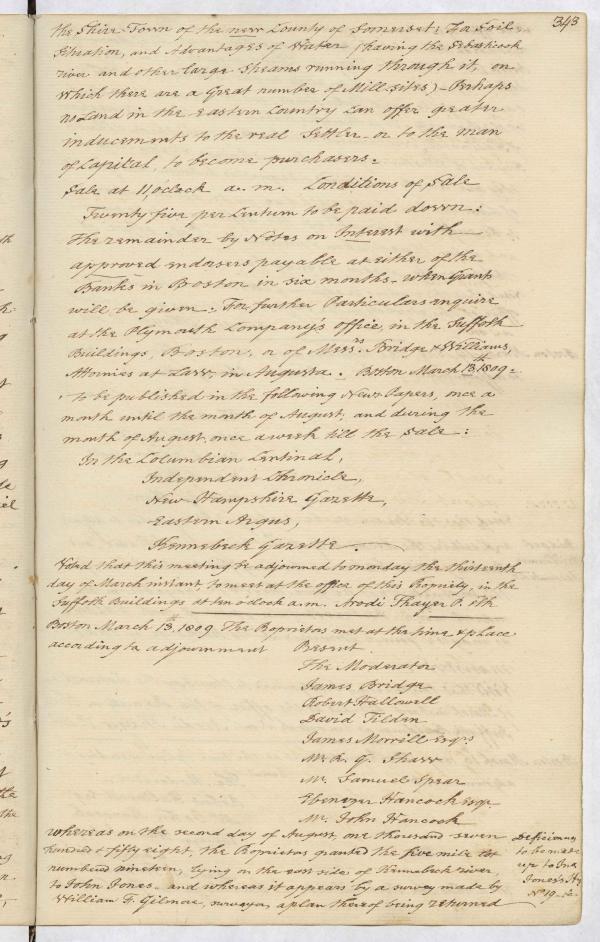 343
the Shire Town of the new County of Somerset: For Soil
Situation, and Advantages of Water (having the Sebasticook
river and other large streams running through it, on
which there are a Great number of Mill sites) - Perhaps
no Land in the Eastern Country can offer greater
inducements to the real Settler or to the man
of Capital, to become purchasers.
Sale at 11 oclock a.m. Conditions of Sale
Twenty five per Centum to be paid down:
The remainder by Notes on Interest with
approved endorsers payable at either of the
Banks in Boston in six months, when Grants
will be given. For further Particulars enquire
at the Plymouth Company's office, in the Suffolk
Buildings, Boston, or of Messrs. Bridge & Williams,
Attornies at Law, in Augusta. Boston March 13th 1809.
to be published in the following News Papers, once a
month until the month of August, and during the
month of August, once a week till the Sale:
In the Columbian Centinal,
Independent Chronicle,
New Hampshire Gazette,
Eastern Argus,
Kennebeck Gazette.
Voted that this meeting be adjourned to monday the thirteenth
day of March instant, to meet at the office of this Propriety, in the
Suffolk Buildings at ten o'clock a.m. Arodi Thayer P. Clk
Boston March 13th 1809. The Proprietors met at the time & place
according to adjournment Present
The Moderator
James Bridge
Robert Hallowell
David Tilden
James Morrill Esqrs
Mr. R. G. Shaw
Mr. Samuel Spear
Ebenezer Hancock Esqr
Mr. John Hancock
whereas on the second day of August, one thousand seven
hundred & fifty eight, the Proprietors granted the five mile lot
numbered nineteen, lying on the east side of Kennebeck river,
to John Jones, and whereas it appears by a survey made by
William F. Gilmore, surveyor, a plan thereof being returned
Deficiency
to be made
up to Jno.
Jones's
No 19